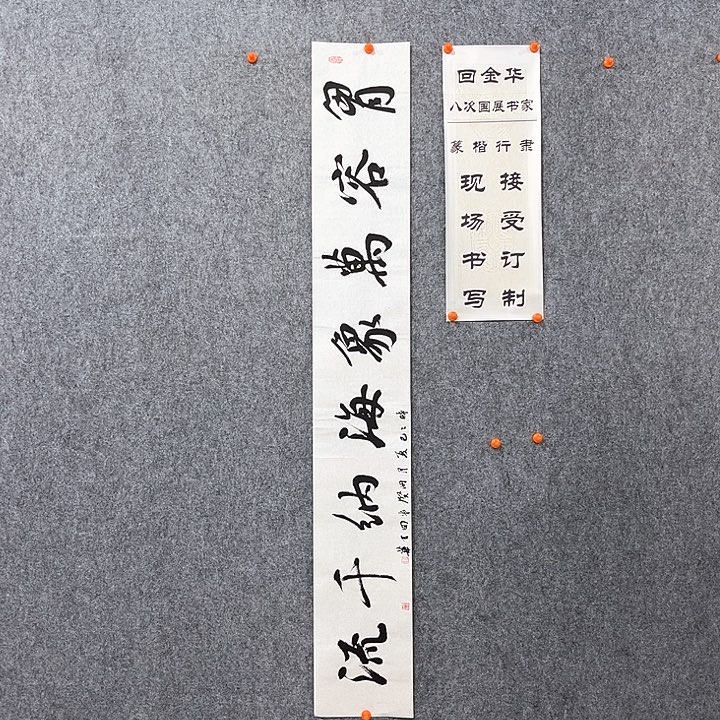 胃容萬象海納千流
回金华
八次国展书家
篆楷行隶
接受订制
现场书写